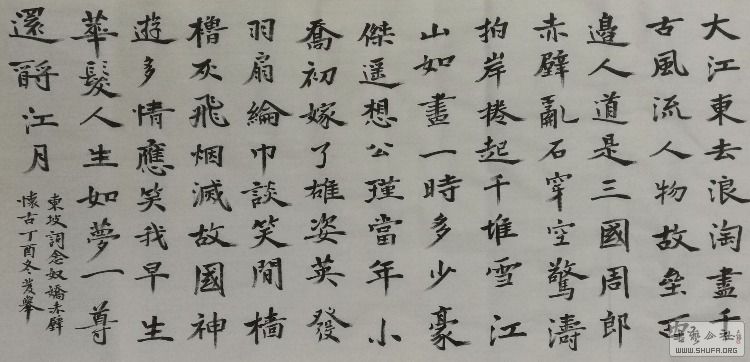 大江東去浪淘盡千
古風流人物故壘西
邊人道是三國周郎
赤壁亂石穿空驚濤
拍岸捲起千堆雪江
山如畫一時多少豪
傑遥想公瑾當年小
喬初嫁了雄姿英發
羽扇綸巾談笑間檣
櫓灰飛烟滅故國神
遊多情應笑我早生
華髮人生如夢一尊
還酹江月
東坡詞念奴嬌赤壁
懷古丁酉冬
WWW.SHUFA.ORG